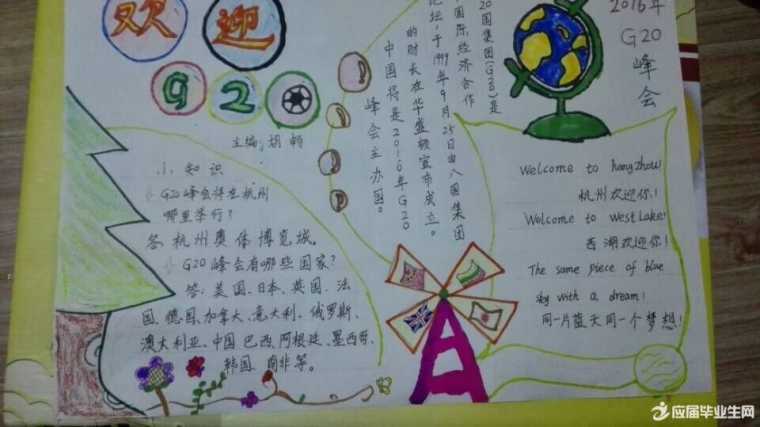 欢迎
G20
主编：胡畅
小知识
G20峰会将在杭州
哪里举行？
答：杭州奥体博览城。
G20峰会有哪些国家？
答：美国、日本、英国、法
国、德国、加拿大、意大利、俄罗斯、
澳大利亚、中国、巴西、阿根廷、墨西哥、
韩国、南非等。
20国集团(G20)是
国际经济合作
论坛，于1999年9月25日由八国集团
的财长在华盛顿宣布成立。
中国将是2016年G20
峰会主办国。
2016年
G20
峰会
Welcome to hangzhou!
杭州欢迎你！
Welcome to West Lake!
西湖欢迎你！
The same piece of blue
sky with a dream!
同一片蓝天同一个梦想！
应届毕业生网